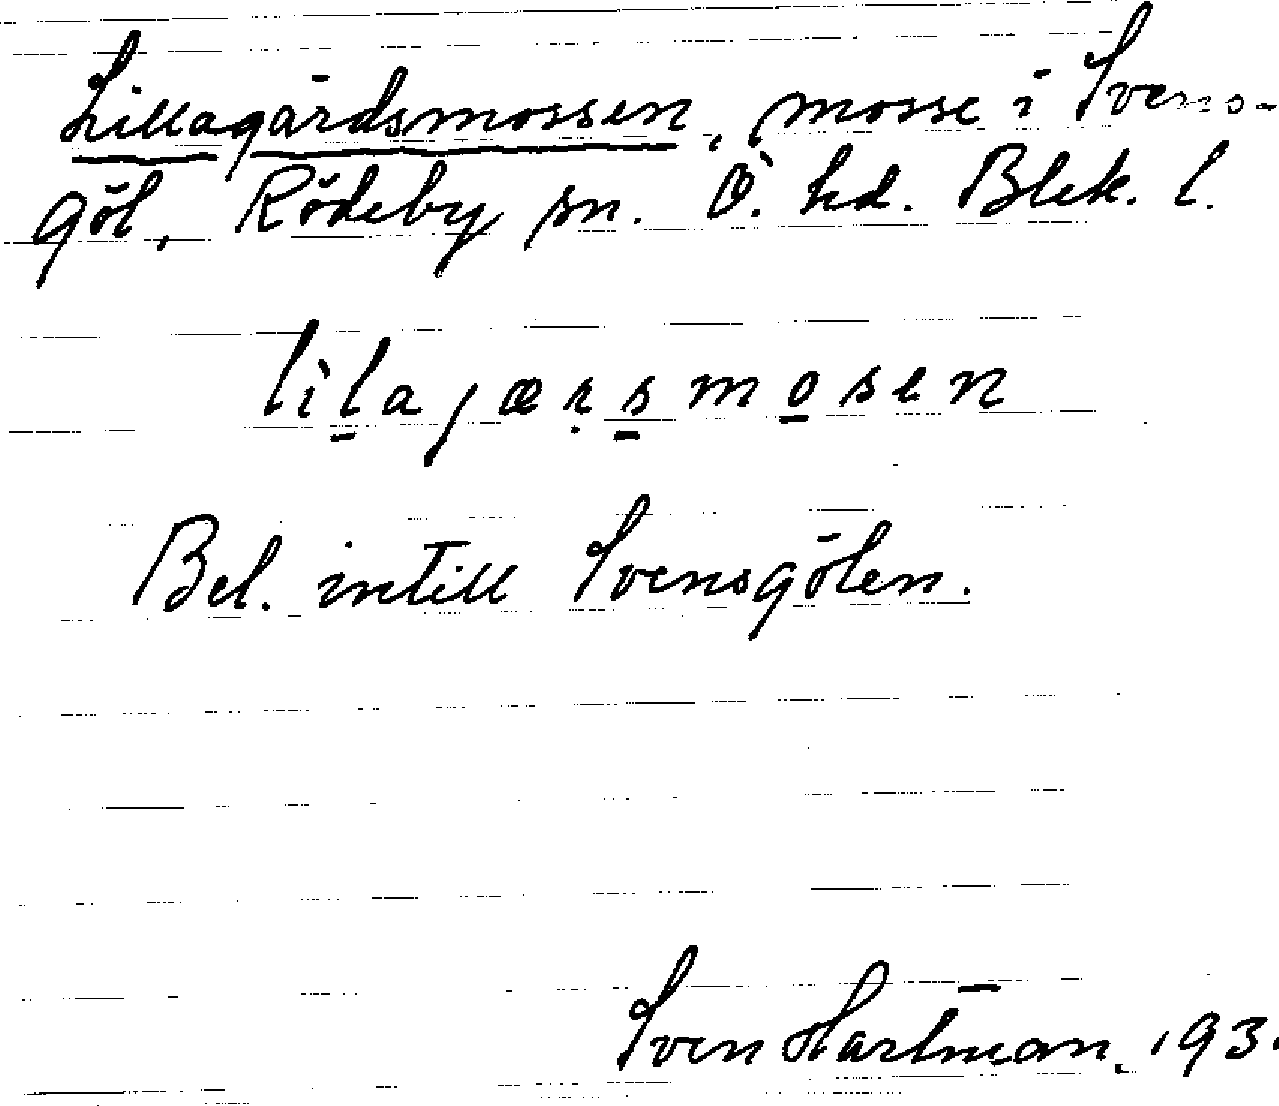 Lillagärdsmossen, mosse i Svens-
göl, Rödeby sn. Ö. hd. Blek. l.
lìl̠ajæṛs̠mo̠sen
Bel. intill Svensgölen.
Sven Hartman. 193